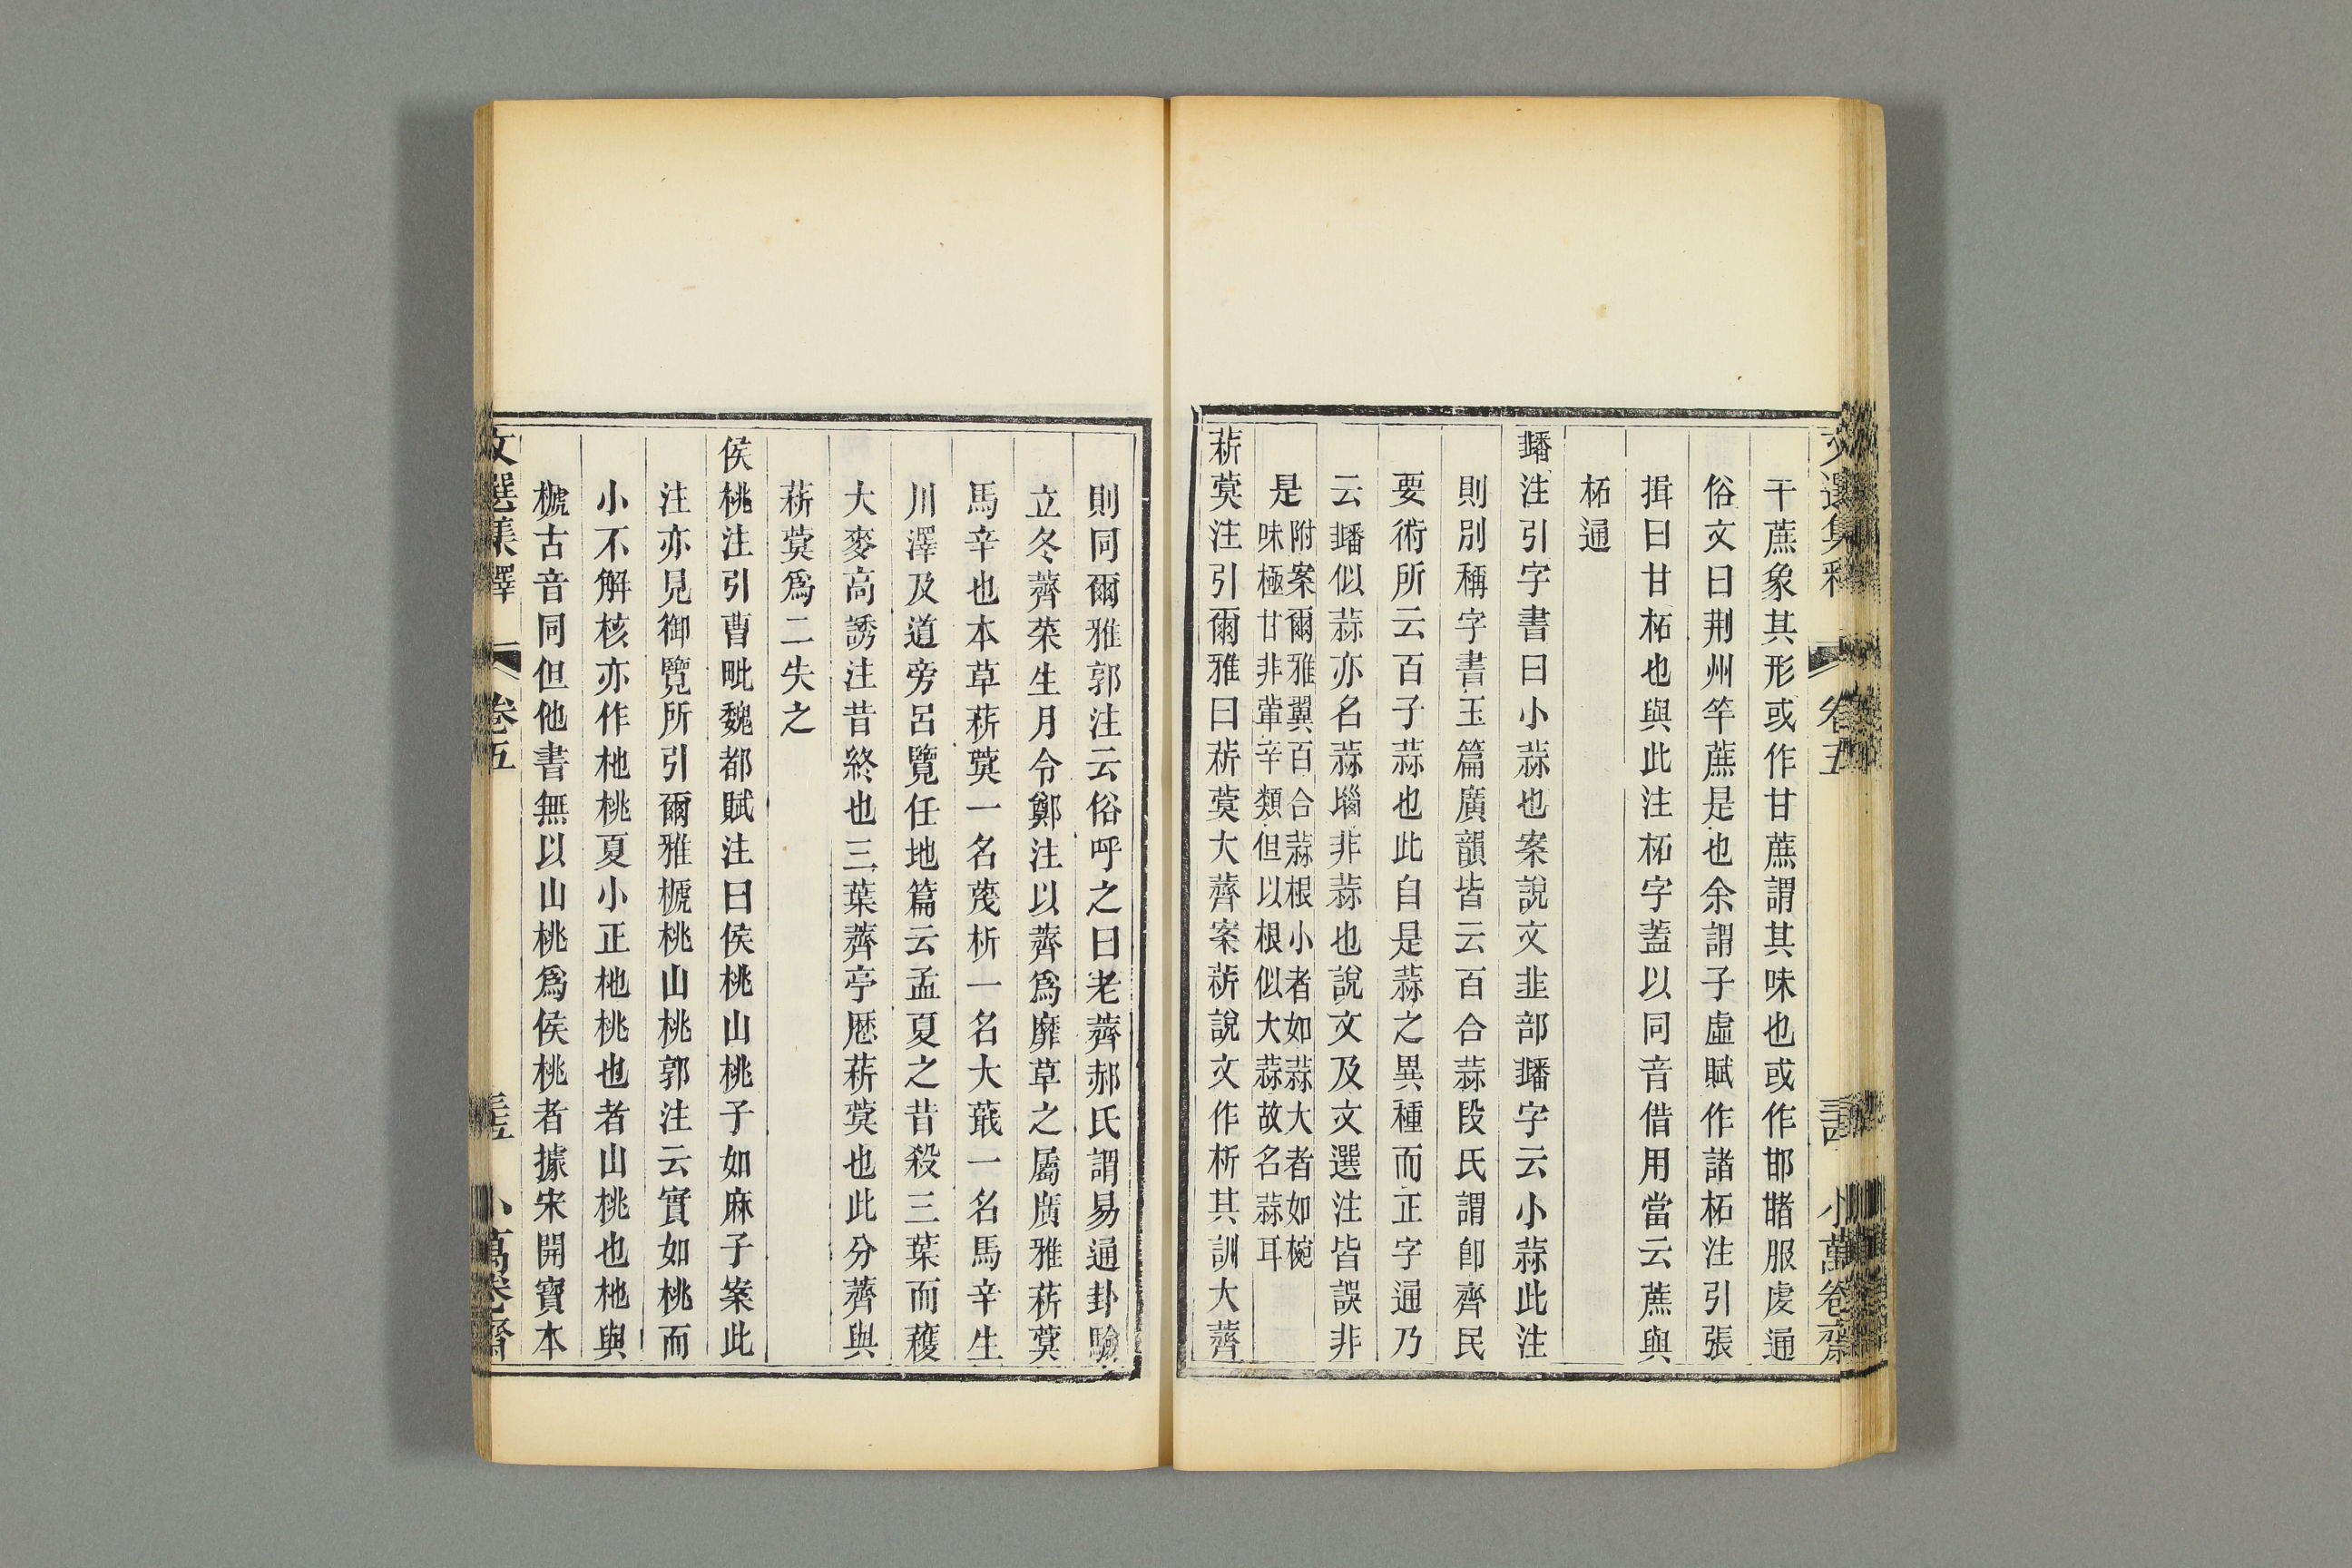 文選集釋 卷五 小萬卷齋
干蔗象其形或作甘蔗謂其味也或作邯䐗服虔通
俗文曰荆州竿蔗是也余謂子虛賦作諸柘注引張
揖曰甘柘也與此注柘字蓋以同音借用當云蔗與
柘通
䪤注引字書曰小蒜也案說文韭部䪤字云小蒜此注
則別稱字書玉篇廣韻皆云百合蒜段氏謂卽齊民
要術所云百子蒜也此自是蒜之異種而正字通乃
云䪤似蒜亦名蒜㙠非蒜也說文及文選注皆誤非
是附案爾雅翼百合蒜根小者如蒜大者如椀
味極甘非葷辛類但以根似大蒜故名蒜耳
菥蓂注引爾雅曰菥蓂大薺案菥說文作析其訓大薺
則同爾雅郭注云俗呼之曰老薺郝氏謂易通卦驗
立冬薺菜生月令鄭注以薺爲靡草之屬廣雅菥蓂
馬辛也本草菥蓂一名蔑析一名大蕺一名馬辛生
川澤及道旁呂覽任地篇云孟夏之昔殺三葉而穫
大麥高誘注昔終也三葉薺亭歷菥蓂也此分薺與
菥蓂爲二失之
侯桃注引曹毗魏都賦注曰侯桃山桃子如麻子案此
注亦見御覽所引爾雅榹桃山桃郭注云實如桃而
小不解核亦作杝桃夏小正杝桃也者山桃也杝與
榹古音同但他書無以山桃爲侯桃者據宋開寶本
文選集釋 卷五 小萬卷齋